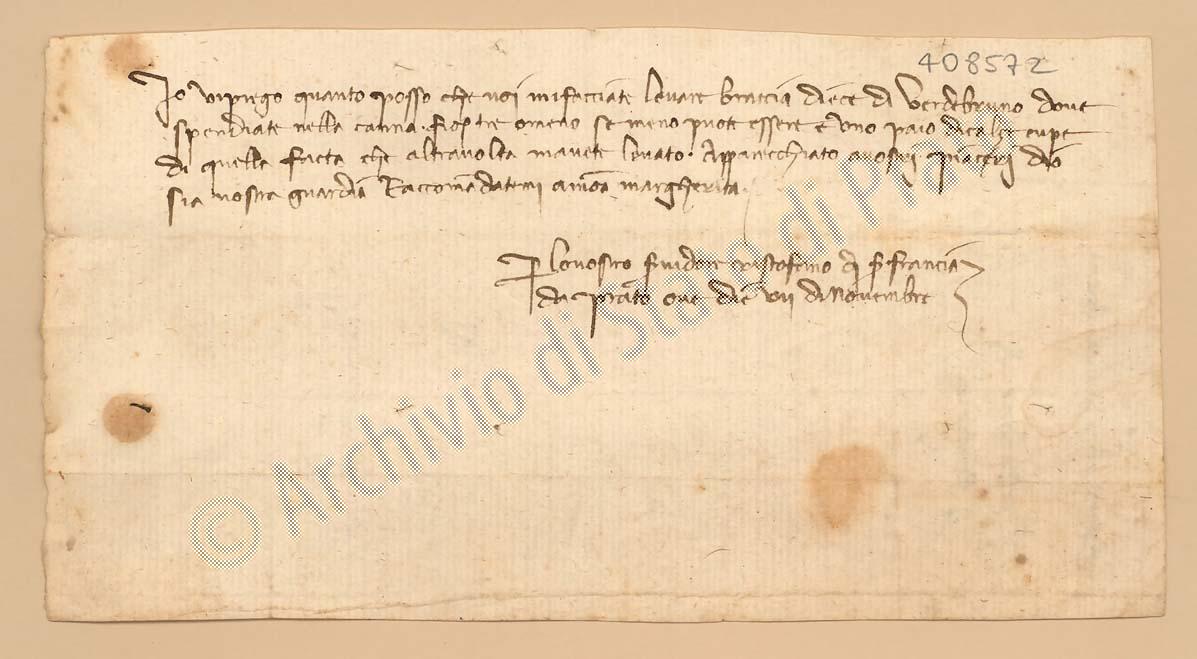 408572
Io vi priego quanto posso che voi mi facciate levare braccia diece di verdebruno dove
spendiate nella canna . fior. tre o meno se meno puote essere e uno paio di calze cupe
di quella facta che altravolta mavete levato . Apparecchiato a vostri piaceri dio
sia vostra guardia Raccomandatemi a mona margherita .
lo vostro servidore cristofano di ser francia
da prato oue die vii di Novembre
© Archivio di Stato di Prato